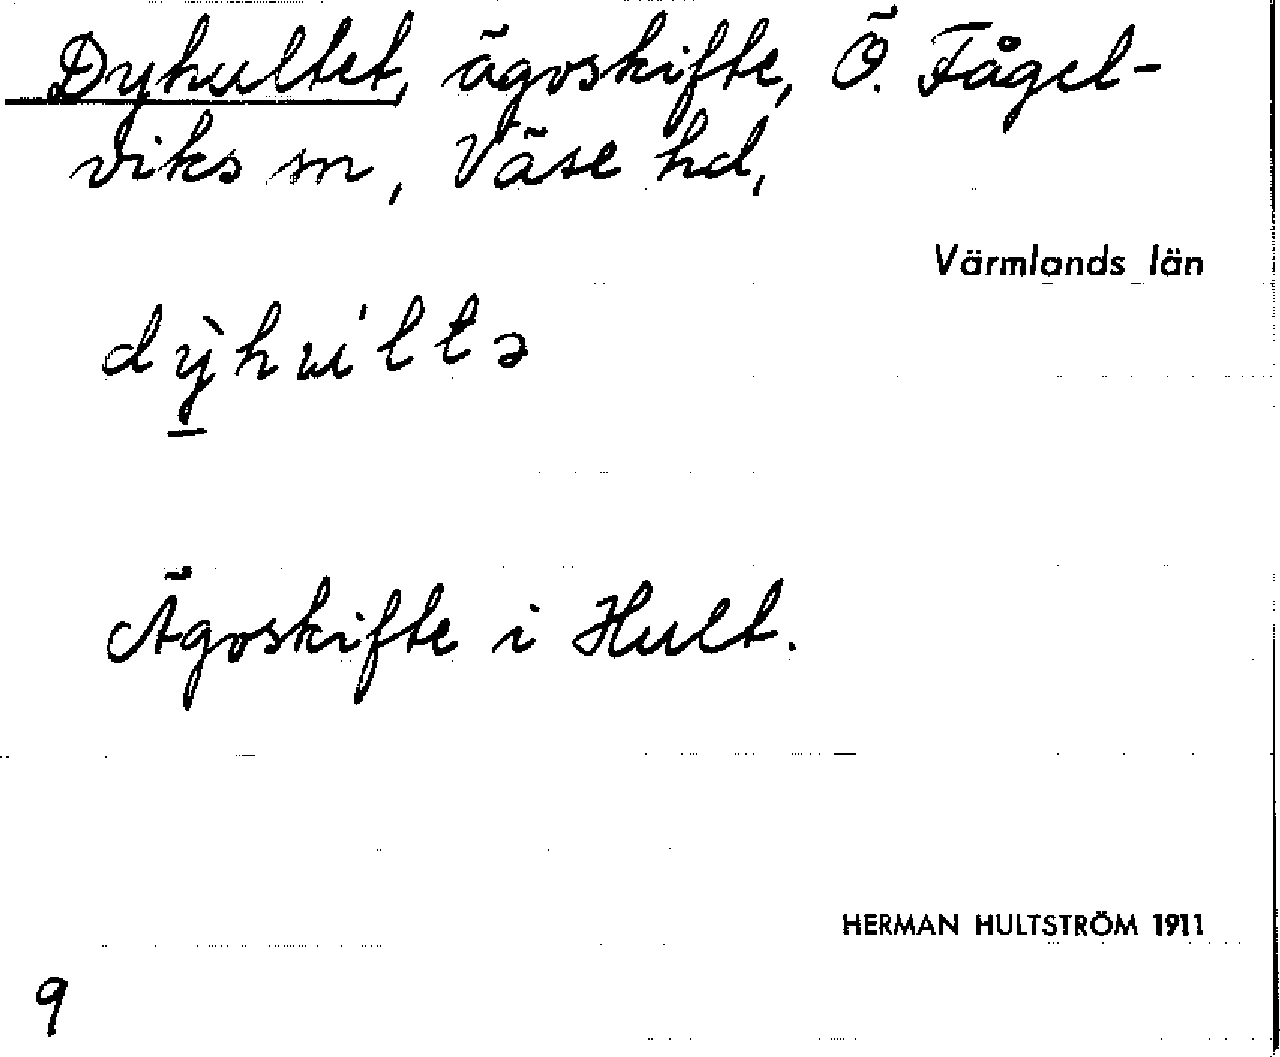 Dyhultet, ägoskifte, Ö. Fågel-
viks sn, Väse hd,
Värmlands län
dỳ̱hu'ltə
Ägoskifte i Hult.
HERMAN HULTSTRÖM 1911
9